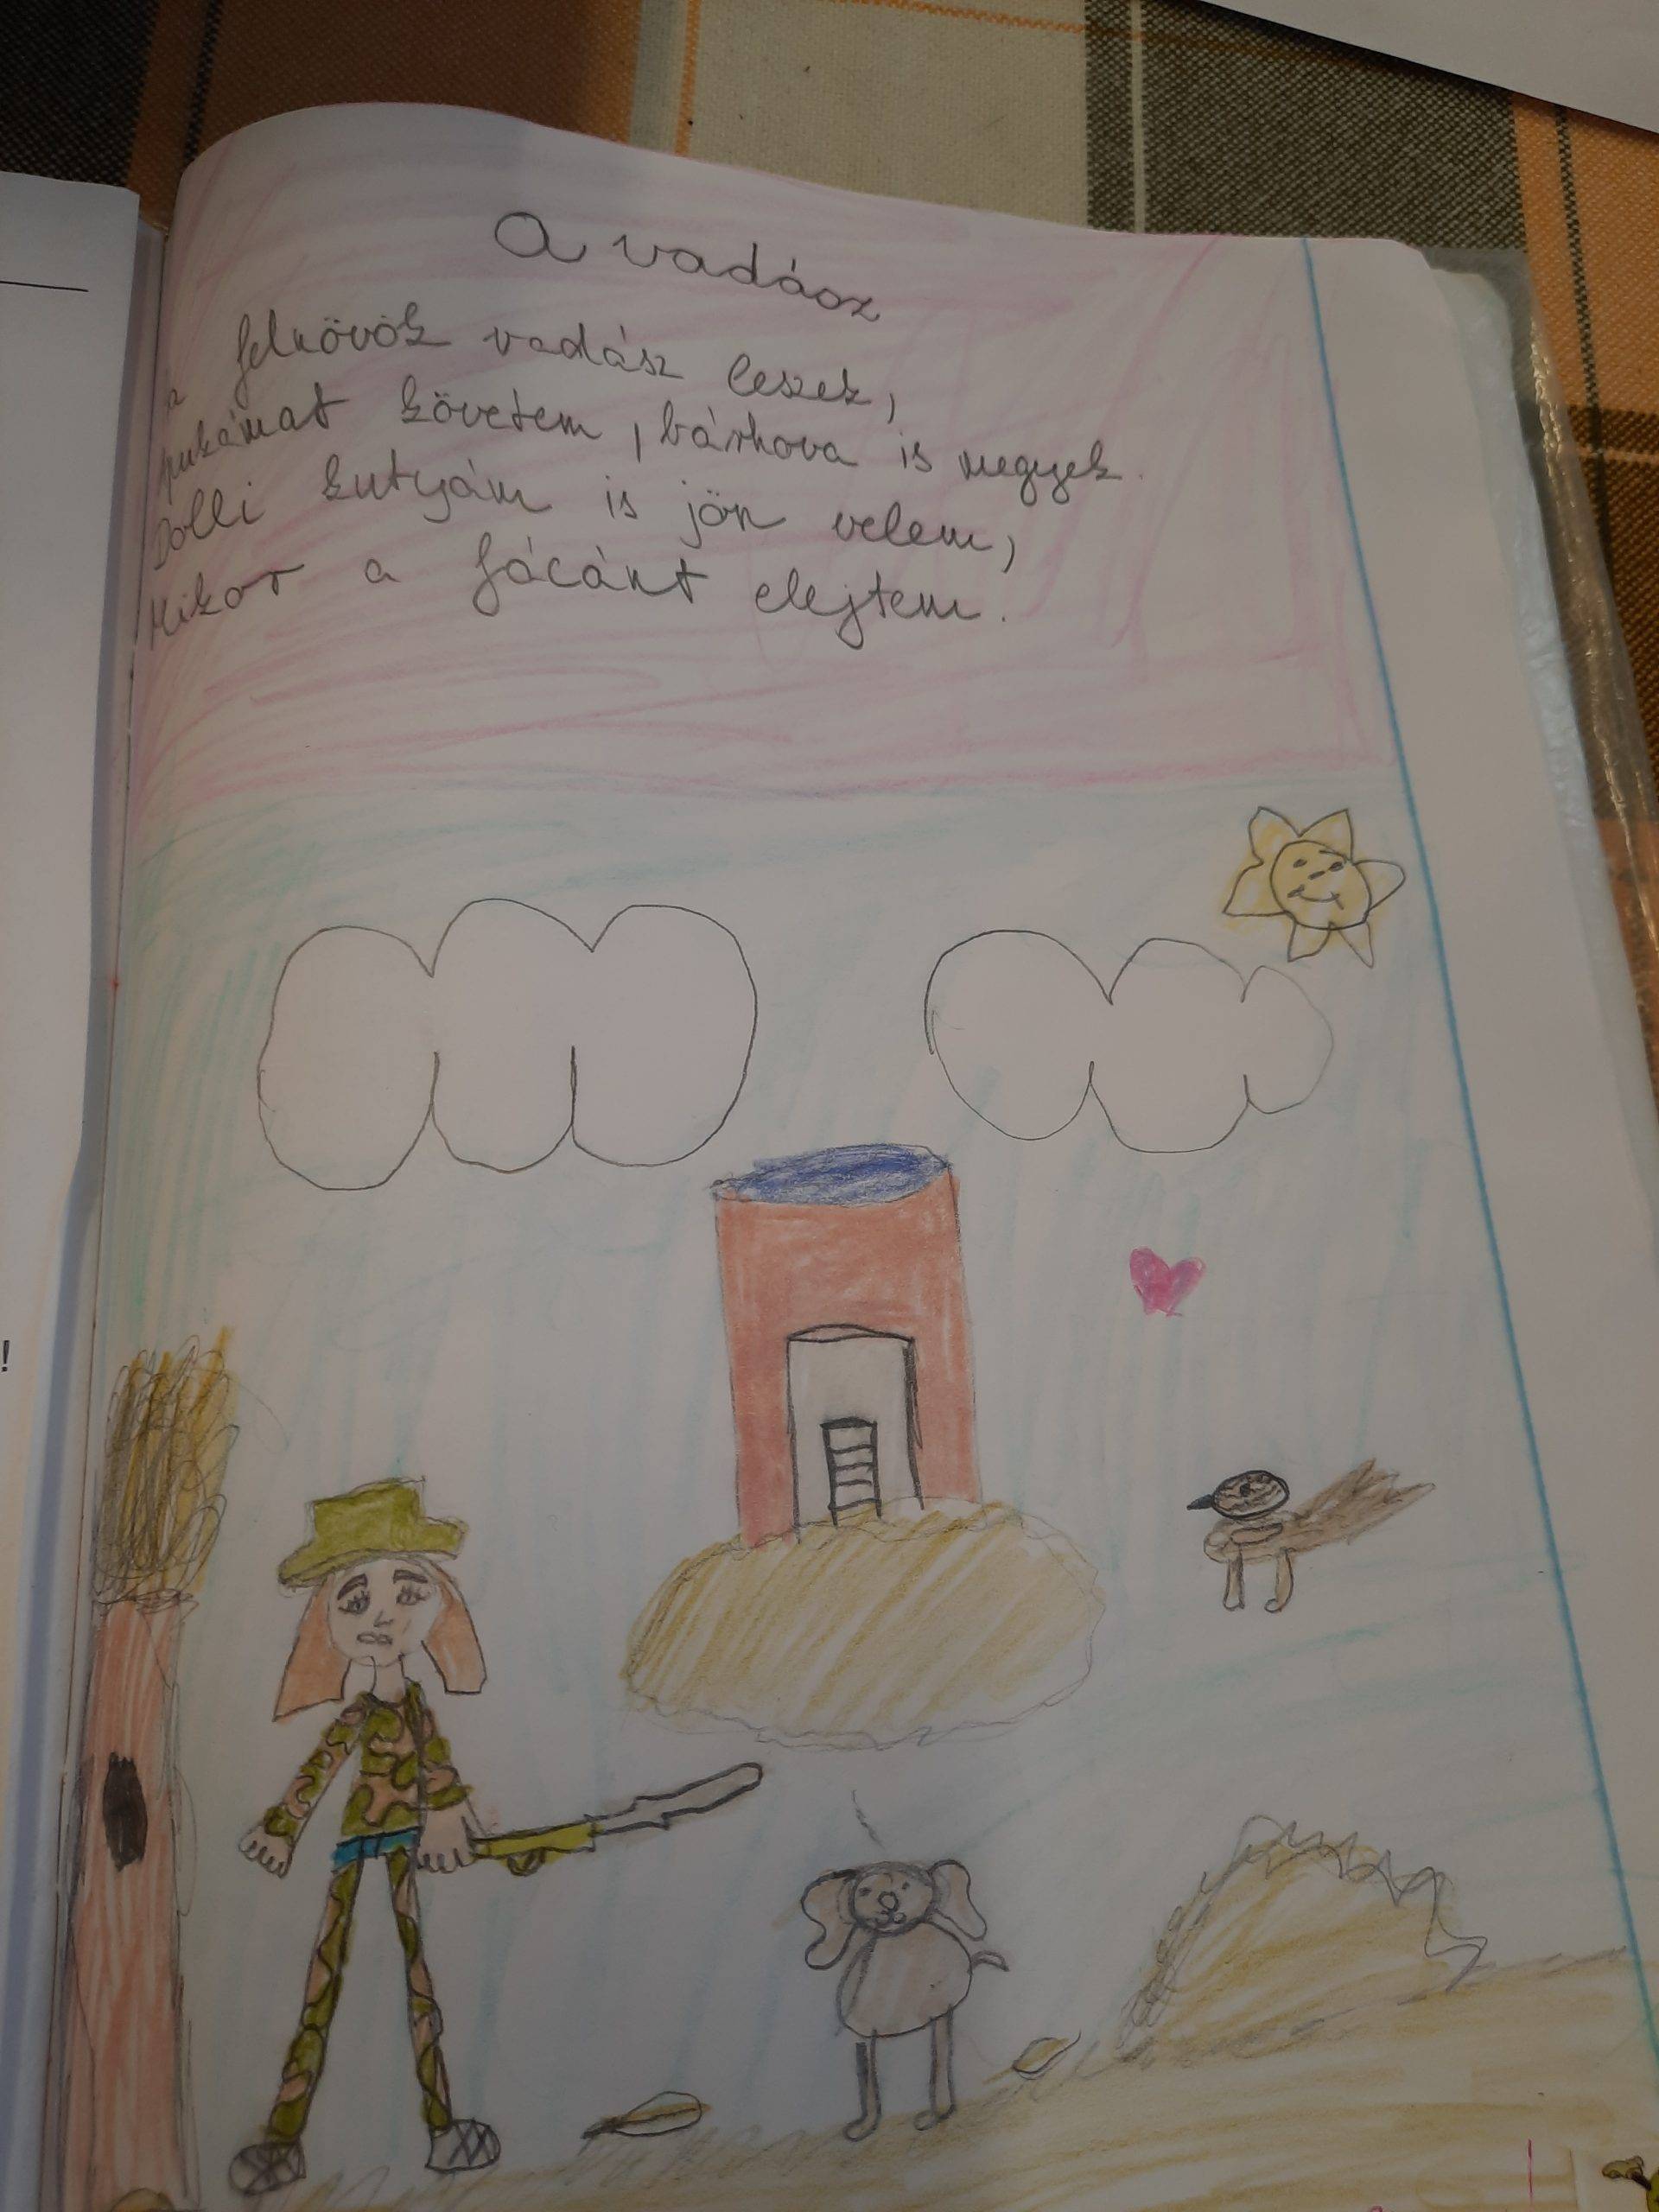 A vadász
a felnövök vadász leszek,
pukámat követem, bárhova is megyek.
Dolli kutyám is jön velem,
Mikor a fácánt elejtem.
!